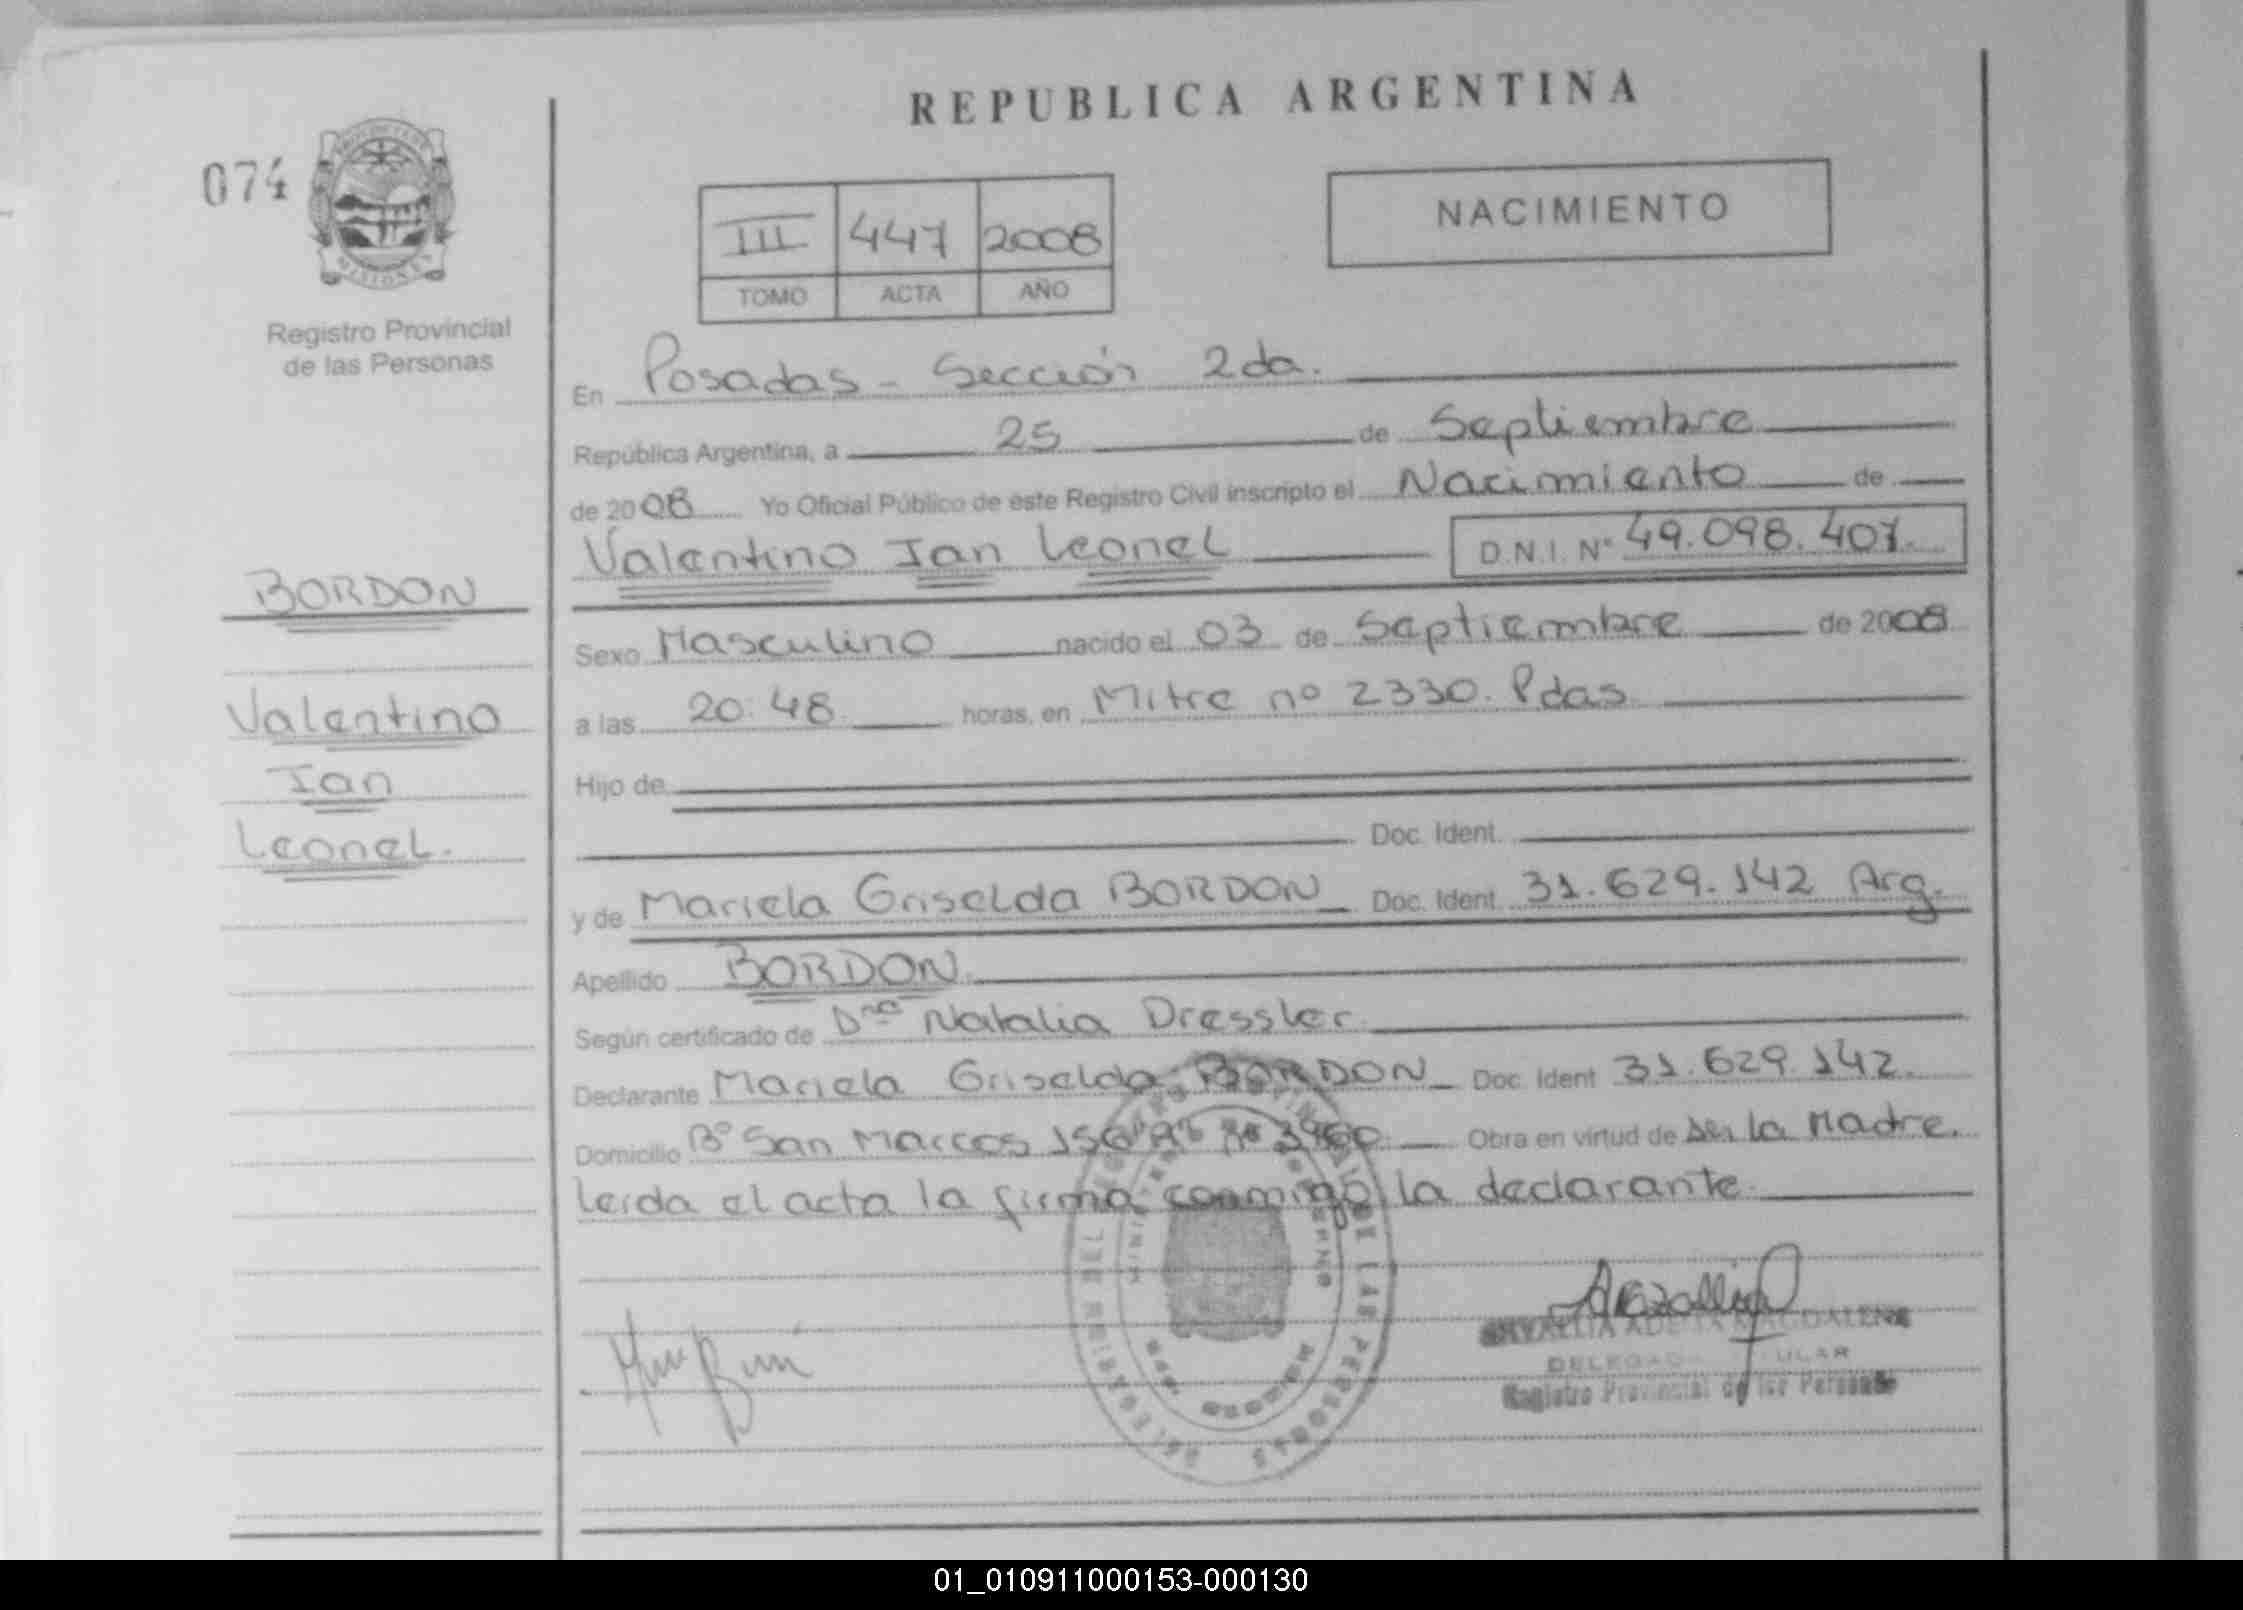 REPUBLICA ARGENTINA
074
PROVINCIA
MISIONES
Registro Provincial
de las Personas
III 447 2008
TOMO ACTA AÑO
NACIMIENTO
En Posadas - Sección 2da.
República Argentina, a 25 de Septiembre
de 2008 Yo Oficial Público de este Registro Civil inscripto el Nacimiento de
Valentino Ian Leonel D.N.I. Nº 49.098.407.
BORDON
Valentino
Ian
Leonel.
Sexo Masculino nacido el 03 de Septiembre de 2008
a las 20:48 horas, en Mitre nº 2330. Pdas.
Hijo de
Doc. Ident.
y de Mariela Griselda BORDON Doc. Ident. 31.629.142 Arg.
Apellido BORDON.
Según certificado de Dra Natalia Dressler.
Declarante Mariela Griselda BORDON Doc. Ident 31.629.142.
Domicilio Bº San Marcos Obra en virtud de ser la Madre.
Leida el acta la firma conmigo la declarante.
MAGDALENA
Registro Provincial de las Personas
01_010911000153-000130